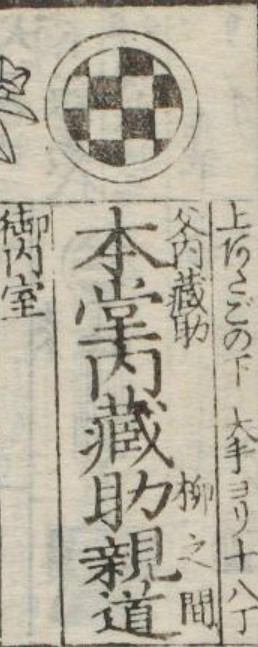 上あさごの下 大手ヨリ十八丁
父内蔵助 柳之間
本堂内蔵助親道
御内室